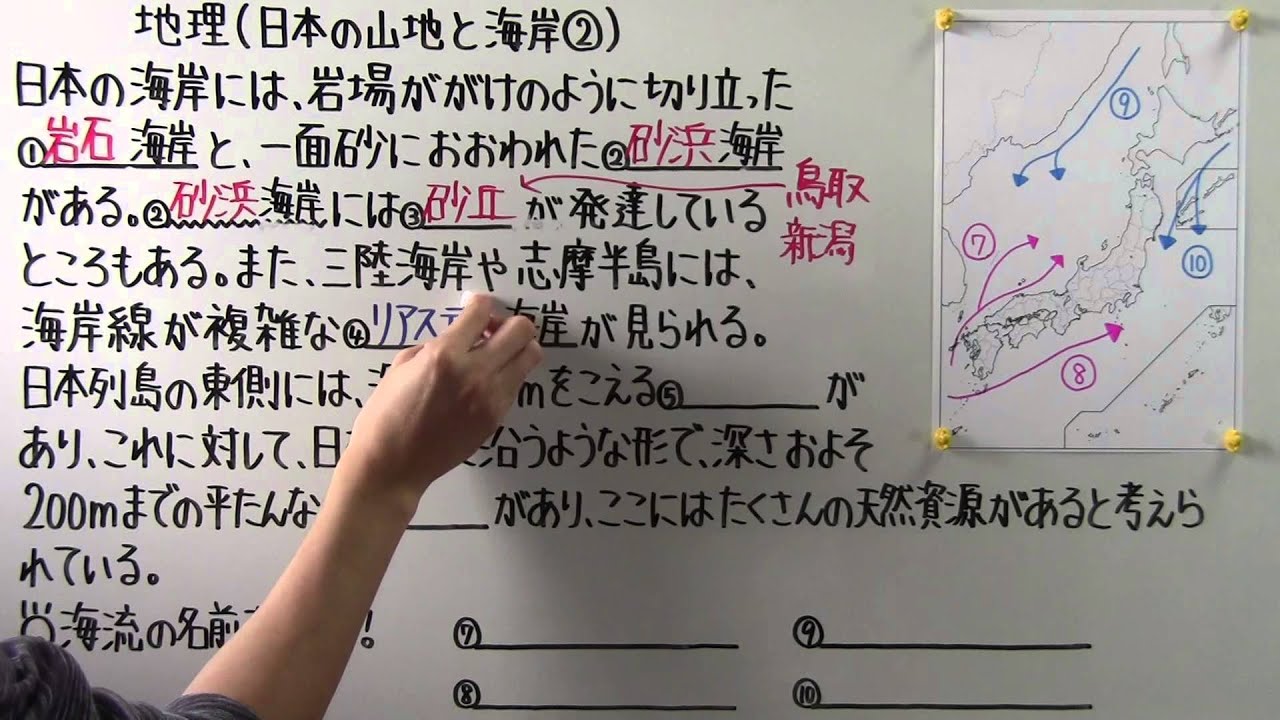 地理(日本の山地と海岸②)
日本の海岸には、岩場ががけのように切り立った
①岩石海岸と、一面砂におおわれた②砂浜海岸
がある。②砂浜海岸には③砂丘が発達している
鳥取
新潟
ところもある。また、三陸海岸や志摩半島には、
海岸線が複雑な④リアス 海岸が見られる。
日本列島の東側には、 mをこえる⑤ が
あり、これに対して、日 沿うような形で、深さおよそ
200mまでの平たんな があり、ここにはたくさんの天然資源があると考えら
れている。
海流の名前 !
⑦
⑧
⑨
⑩
⑨
⑦
⑩
⑧